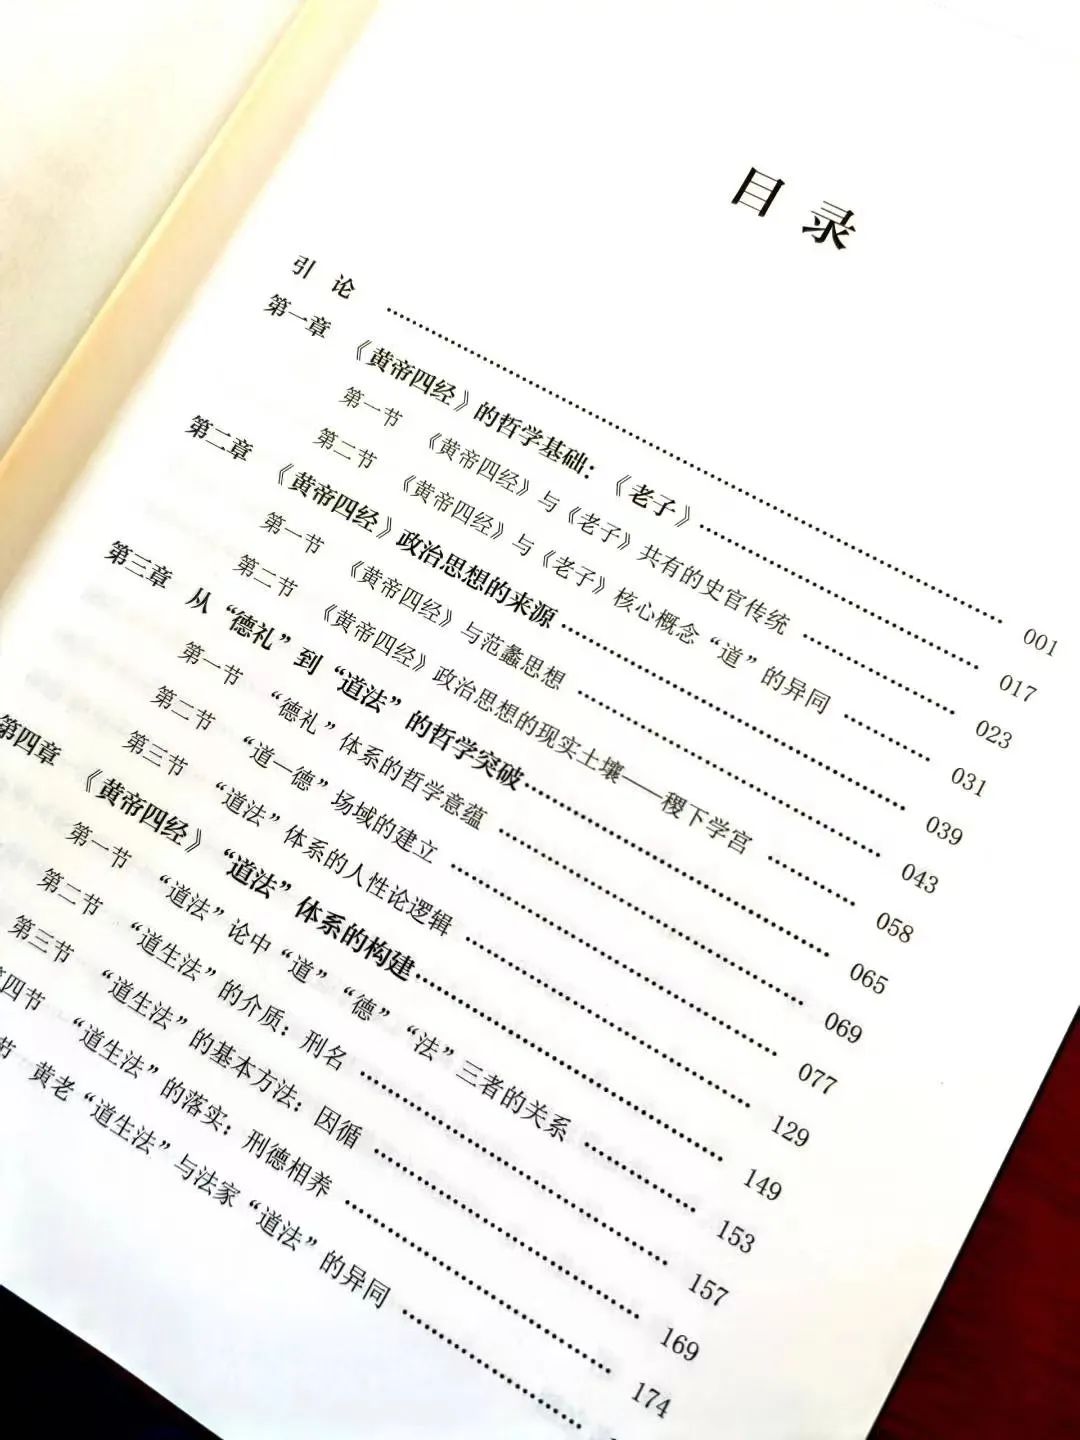 目录
引论 …… 001
第一章 《黄帝四经》的哲学基础：《老子》 …… 017
第一节 《黄帝四经》与《老子》共有的史官传统 …… 023
第二节 《黄帝四经》与《老子》核心概念“道”的异同 …… 031
第二章 《黄帝四经》政治思想的来源 …… 039
第一节 《黄帝四经》与范蠡思想 …… 043
第二节 《黄帝四经》政治思想的现实土壤——稷下学宫 …… 058
第三章 从“德礼”到“道法”的哲学突破 …… 065
第一节 “德礼”体系的哲学意蕴 …… 069
第二节 “道—德”场域的建立 …… 077
第三节 “道法”体系的人性论逻辑 …… 129
第四章 《黄帝四经》“道法”体系的构建 …… 149
第一节 “道法”论中“道”“德”“法”三者的关系 …… 153
第二节 “道生法”的介质：刑名 …… 157
第三节 “道生法”的基本方法：因循 …… 169
第四节 “道生法”的落实：刑德相养 …… 174
节 黄老“道生法”与法家“道法”的异同 ……